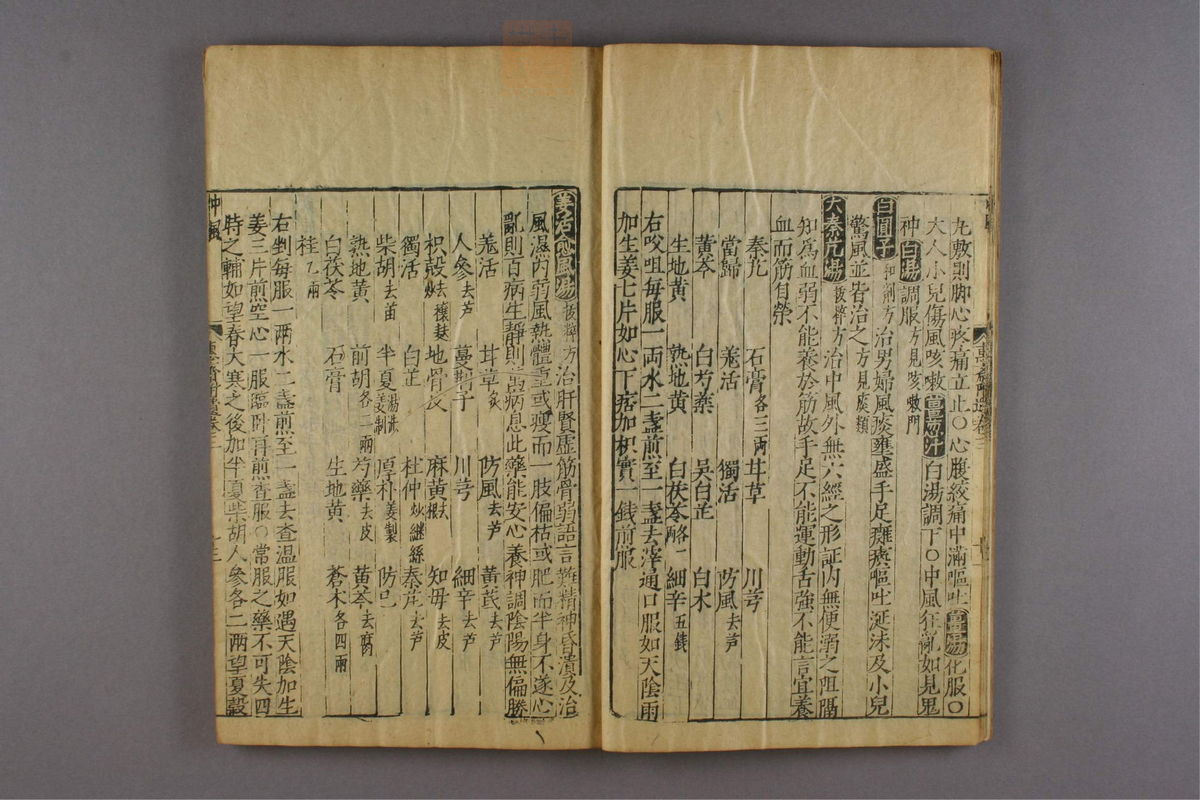 丸敷則脚心疼痛立止○心腹絞痛中滿嘔吐薑湯化服○
大人小兒傷風咳嗽薑汁白湯調下○中風狂亂如見鬼
神白湯調服方見咳嗽門
白圓子和劑方治男婦風痰壅盛手足癱瘓嘔吐涎沫及小兒
驚風並皆治之方見痰類
大秦艽湯拔粹方治中風外無六經之形証內無便溺之阻隔
知爲血弱不能養於筋故手足不能運動舌強不能言宜養
血而筋自榮
秦艽 石膏各三兩 甘草 川芎
當歸 羗活 獨活 防風去芦
黃芩 白芍藥 吳白芷 白朮
生地黃 熟地黃 白茯苓各一 細辛五錢
右㕮咀每服一両水二盞煎至一盞去滓通口服如天陰雨
加生姜七片如心下痞加枳實一錢前服
羗活愈風湯拔粹方治肝腎虛筋骨弱語言難精神昏潰及治
風濕內弱風熱體重或瘦而一肢偏枯或肥而半身不遂心
亂則百病生靜則萬病息此藥能安心養神調陰陽無偏勝
羗活 甘草炙 防風去芦 黃芪去芦
人參去芦 蔓荆子 川芎 細辛去芦
枳殼去穰麸 地骨皮 麻黃去根 知毋去皮
獨活 白芷 杜仲炒継絲 秦艽去芦
柴胡去苗 半夏湯洗姜制 厚朴姜製 防己
熟地黃 前胡各二兩 芍藥去皮 黃芩去腐
白茯苓 石膏 生地黃 蒼朮各四兩
桂乙兩
右剉每服一兩水二盞煎至一盞去查溫服如遇天陰加生
姜三片煎空心一服臨卧再煎查服○常服之藥不可失四
時之輔如望春大寒之後加半夏柴胡人參各二兩望夏穀
中風